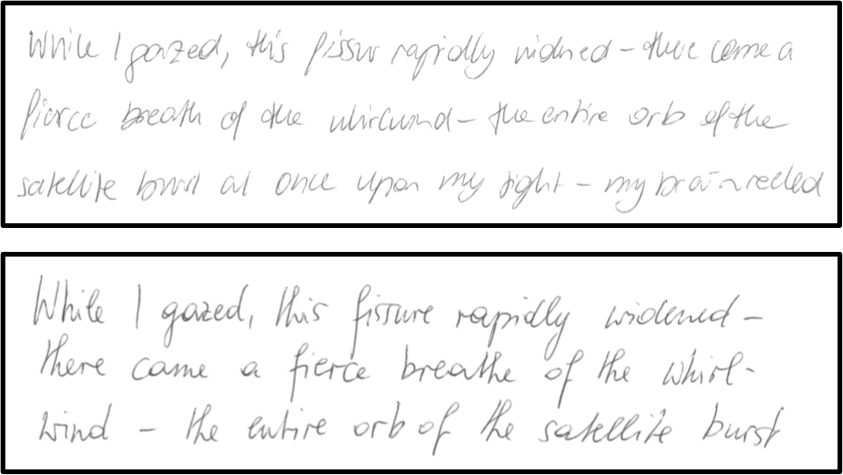 While I gazed, this fissur rapidly widened – there came a
fierce breath of the whirlwind – the entire orb of the
satellite burst at once upon my sight – my brain reeled
While I gazed, this fissure rapidly widened –
there came a fierce breathe of the whirl-
wind – the entire orb of the satellite burst